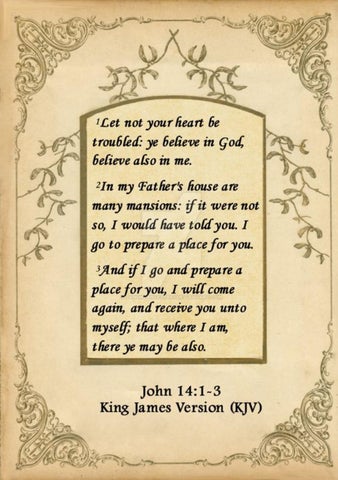 ¹Let not your heart be
troubled: ye believe in God,
believe also in me.
²In my Father's house are
many mansions: if it were not
so, I would have told you. I
go to prepare a place for you.
³And if I go and prepare a
place for you, I will come
again, and receive you unto
myself; that where I am,
there ye may be also.
John 14:1-3
King James Version (KJV)